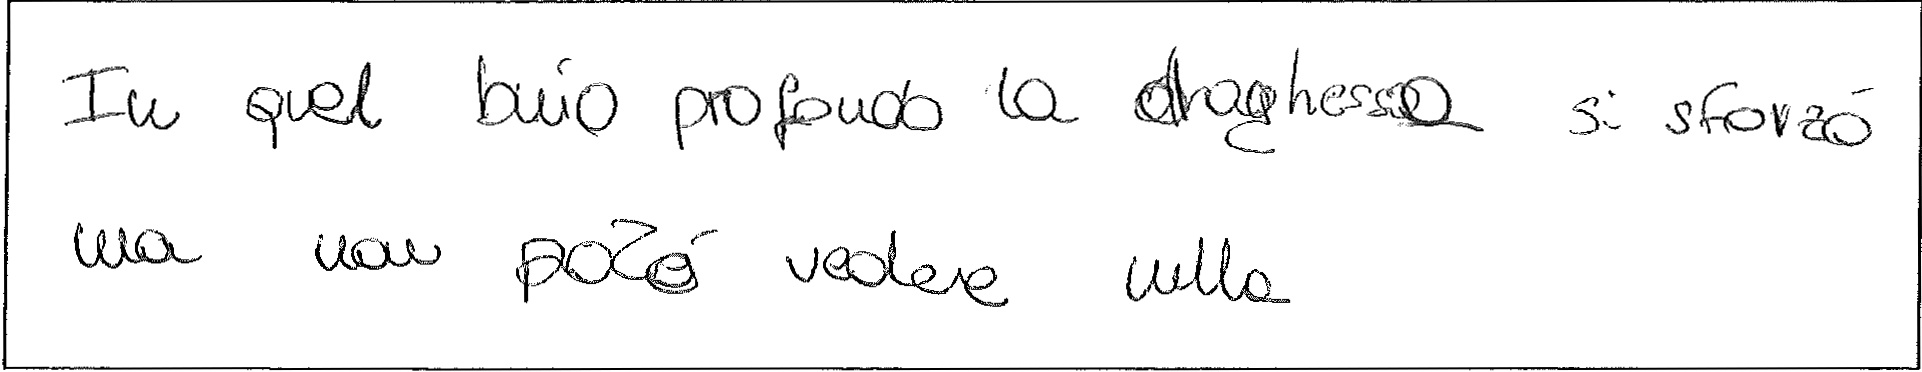 In quel buio profondo la draghessa si sforzó
ma non poté vedere nulla